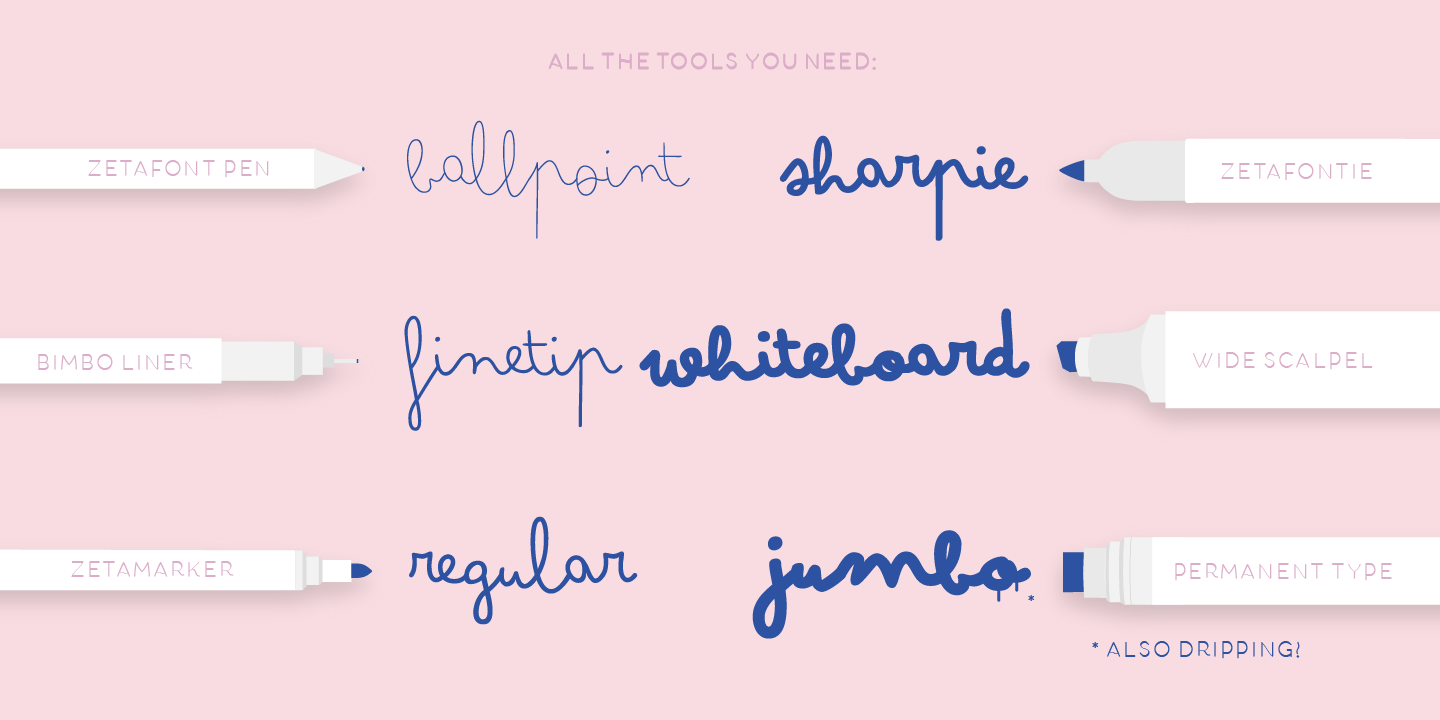 ALL THE TOOLS YOU NEED:
ZETAFONT PEN ballpoint sharpie ZETAFONTIE
BIMBO LINER finetip whiteboard WIDE SCALPEL
ZETAMARKER regular jumbo* PERMANENT TYPE
* ALSO DRIPPING!